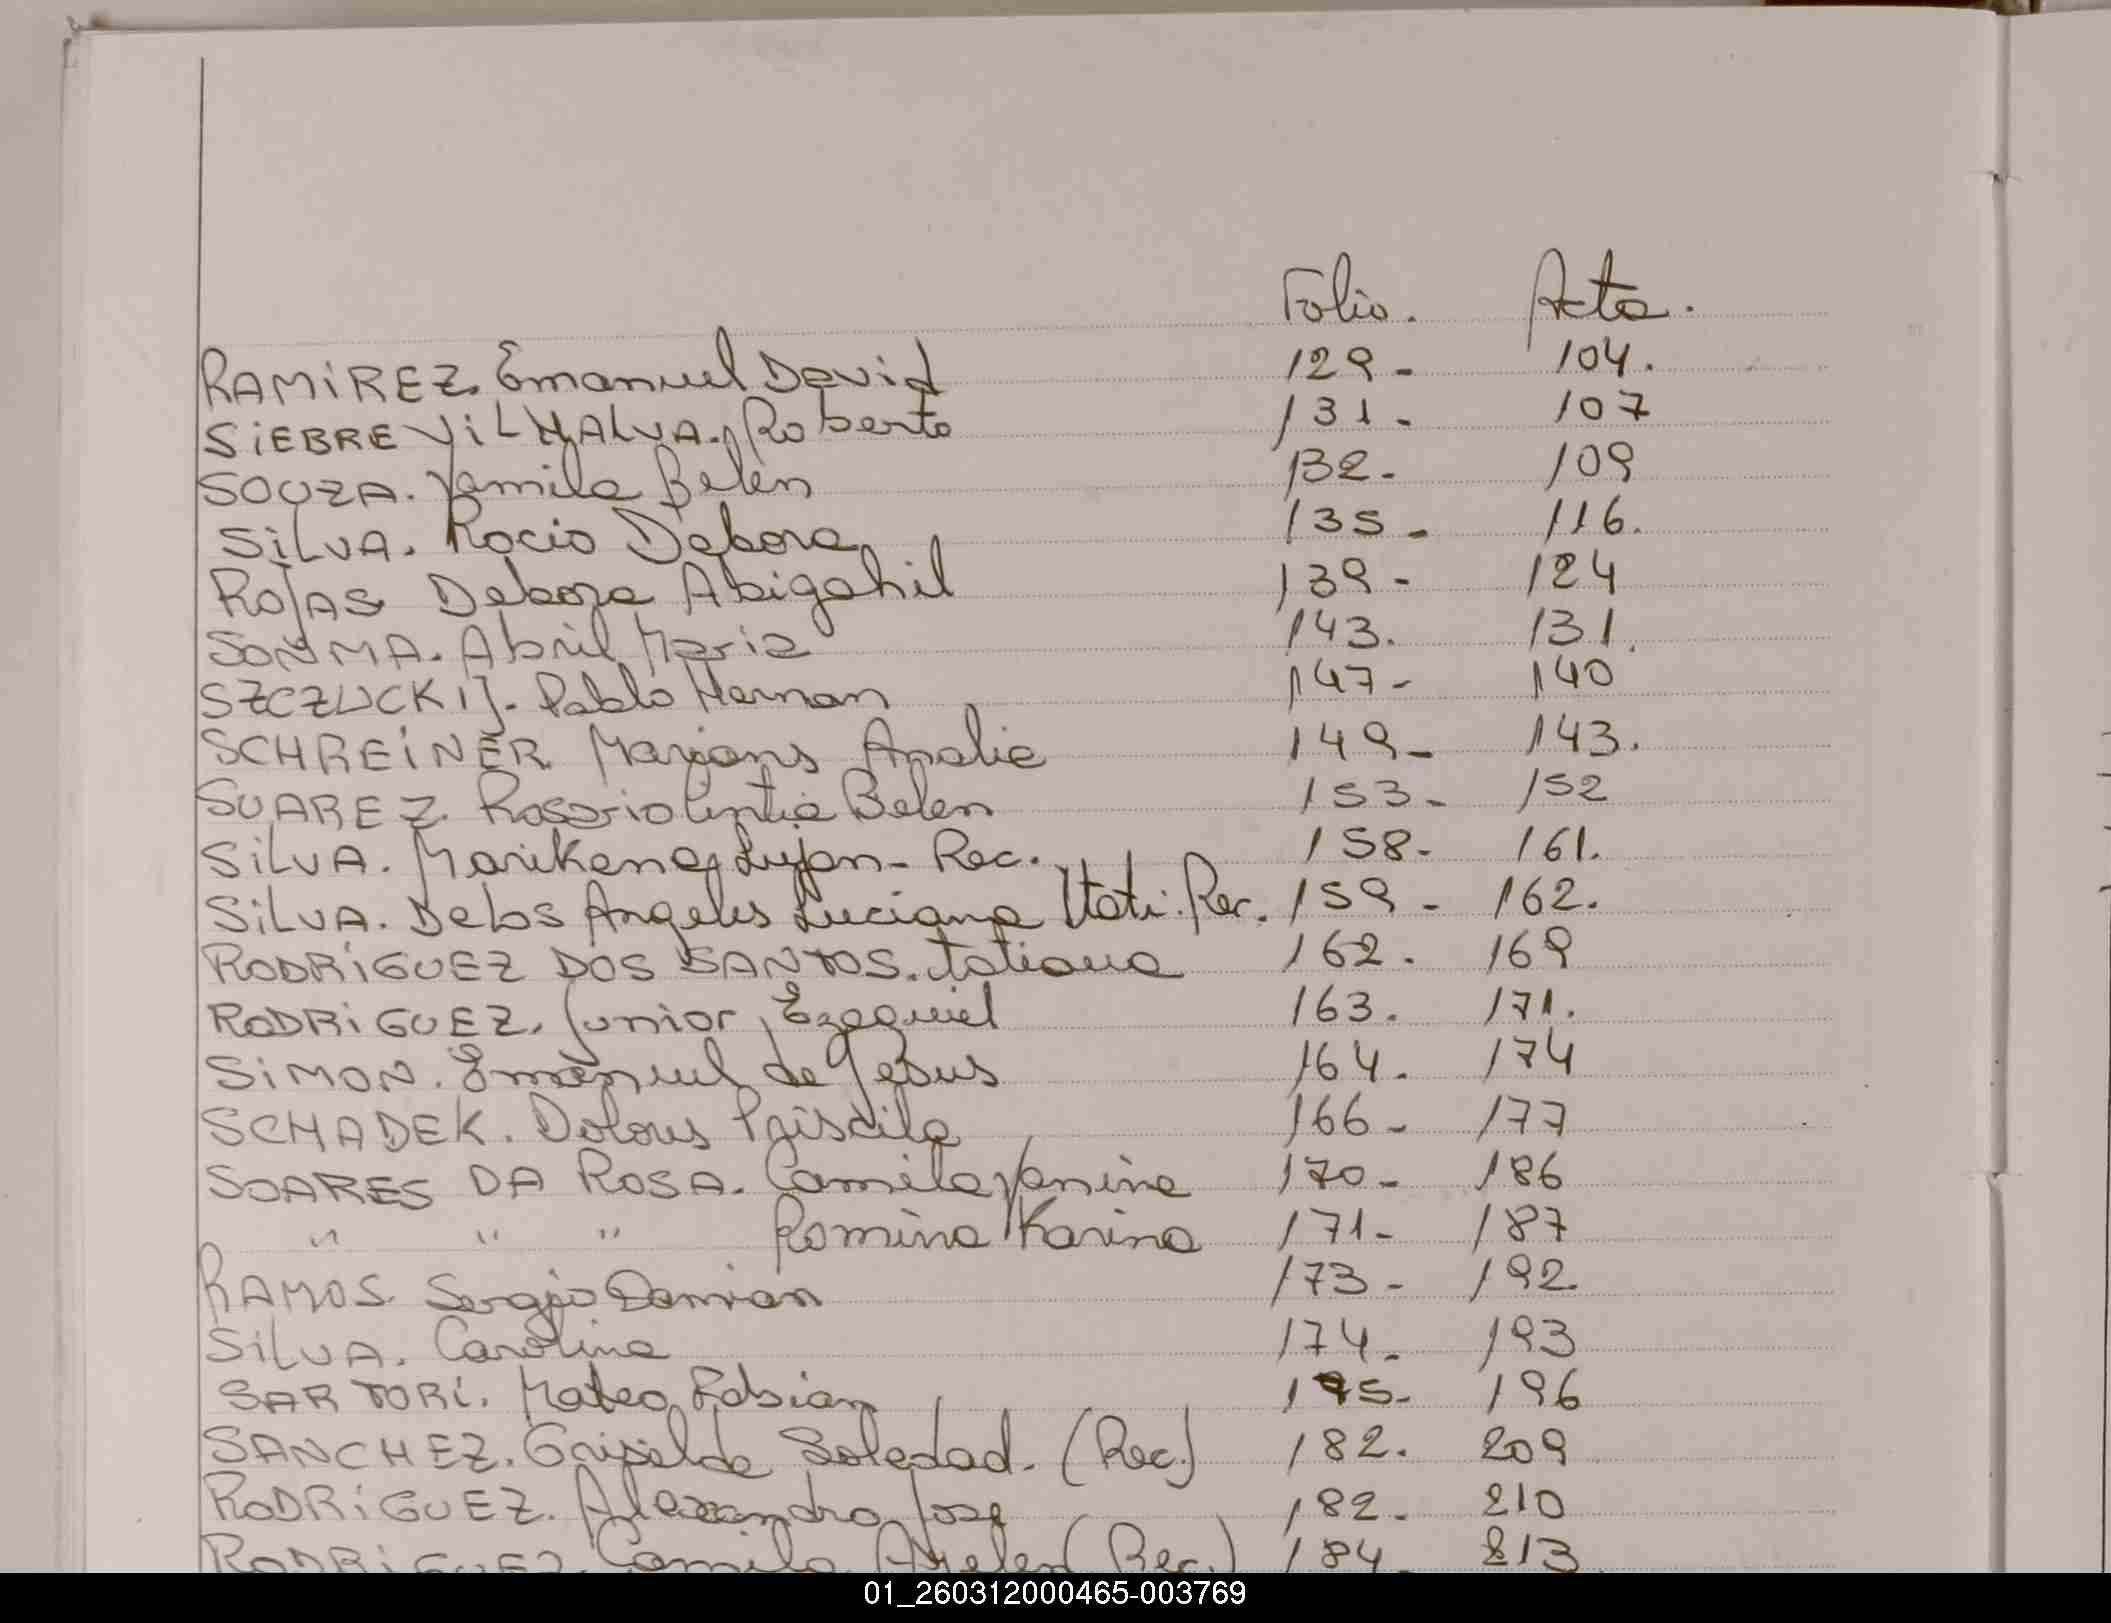 Folio. Acta.
RAMIREZ. Emanuel David 129- 104.
SIEBRE VILHALVA. Roberto 131- 107
SOUZA. Yamila Belen 132- 109
SILVA. Rocio Debora 135- 116.
ROJAS Debora Abigahil 139- 124
SONMA. Abril Maria 143. 131.
SZCZUCKIJ. Pablo Hernan 147- 140
SCHREINER Mariana Analia 149- 143.
SUAREZ. Rosario Cintia Belen 153- 152
SILVA. Marikena Lujan- Rec. 158- 161.
SILVA. De los Angeles Luciana Itati. Rec. 159- 162.
RODRIGUEZ DOS SANTOS. Tatiana 162. 169
RODRIGUEZ. Junior Ezequiel 163. 171.
SIMON. Emanuel de Jesus 164. 174
SCHADEK. Dolores Priscila 166- 177
SOARES DA ROSA. Camila Yanina 170- 186
" " " Romina Karina 171- 187
RAMOS. Sergio Damian 173- 192.
SILVA. Carolina 174. 193
SARTORI. Mateo Fabian 175- 196
SANCHEZ. Griselda Soledad. (Rec.) 182. 209
RODRIGUEZ. Alexandro Jose 182- 210
RODRIGUEZ. Camila Arelen (Rec.) 184. 213
01_260312000465-003769